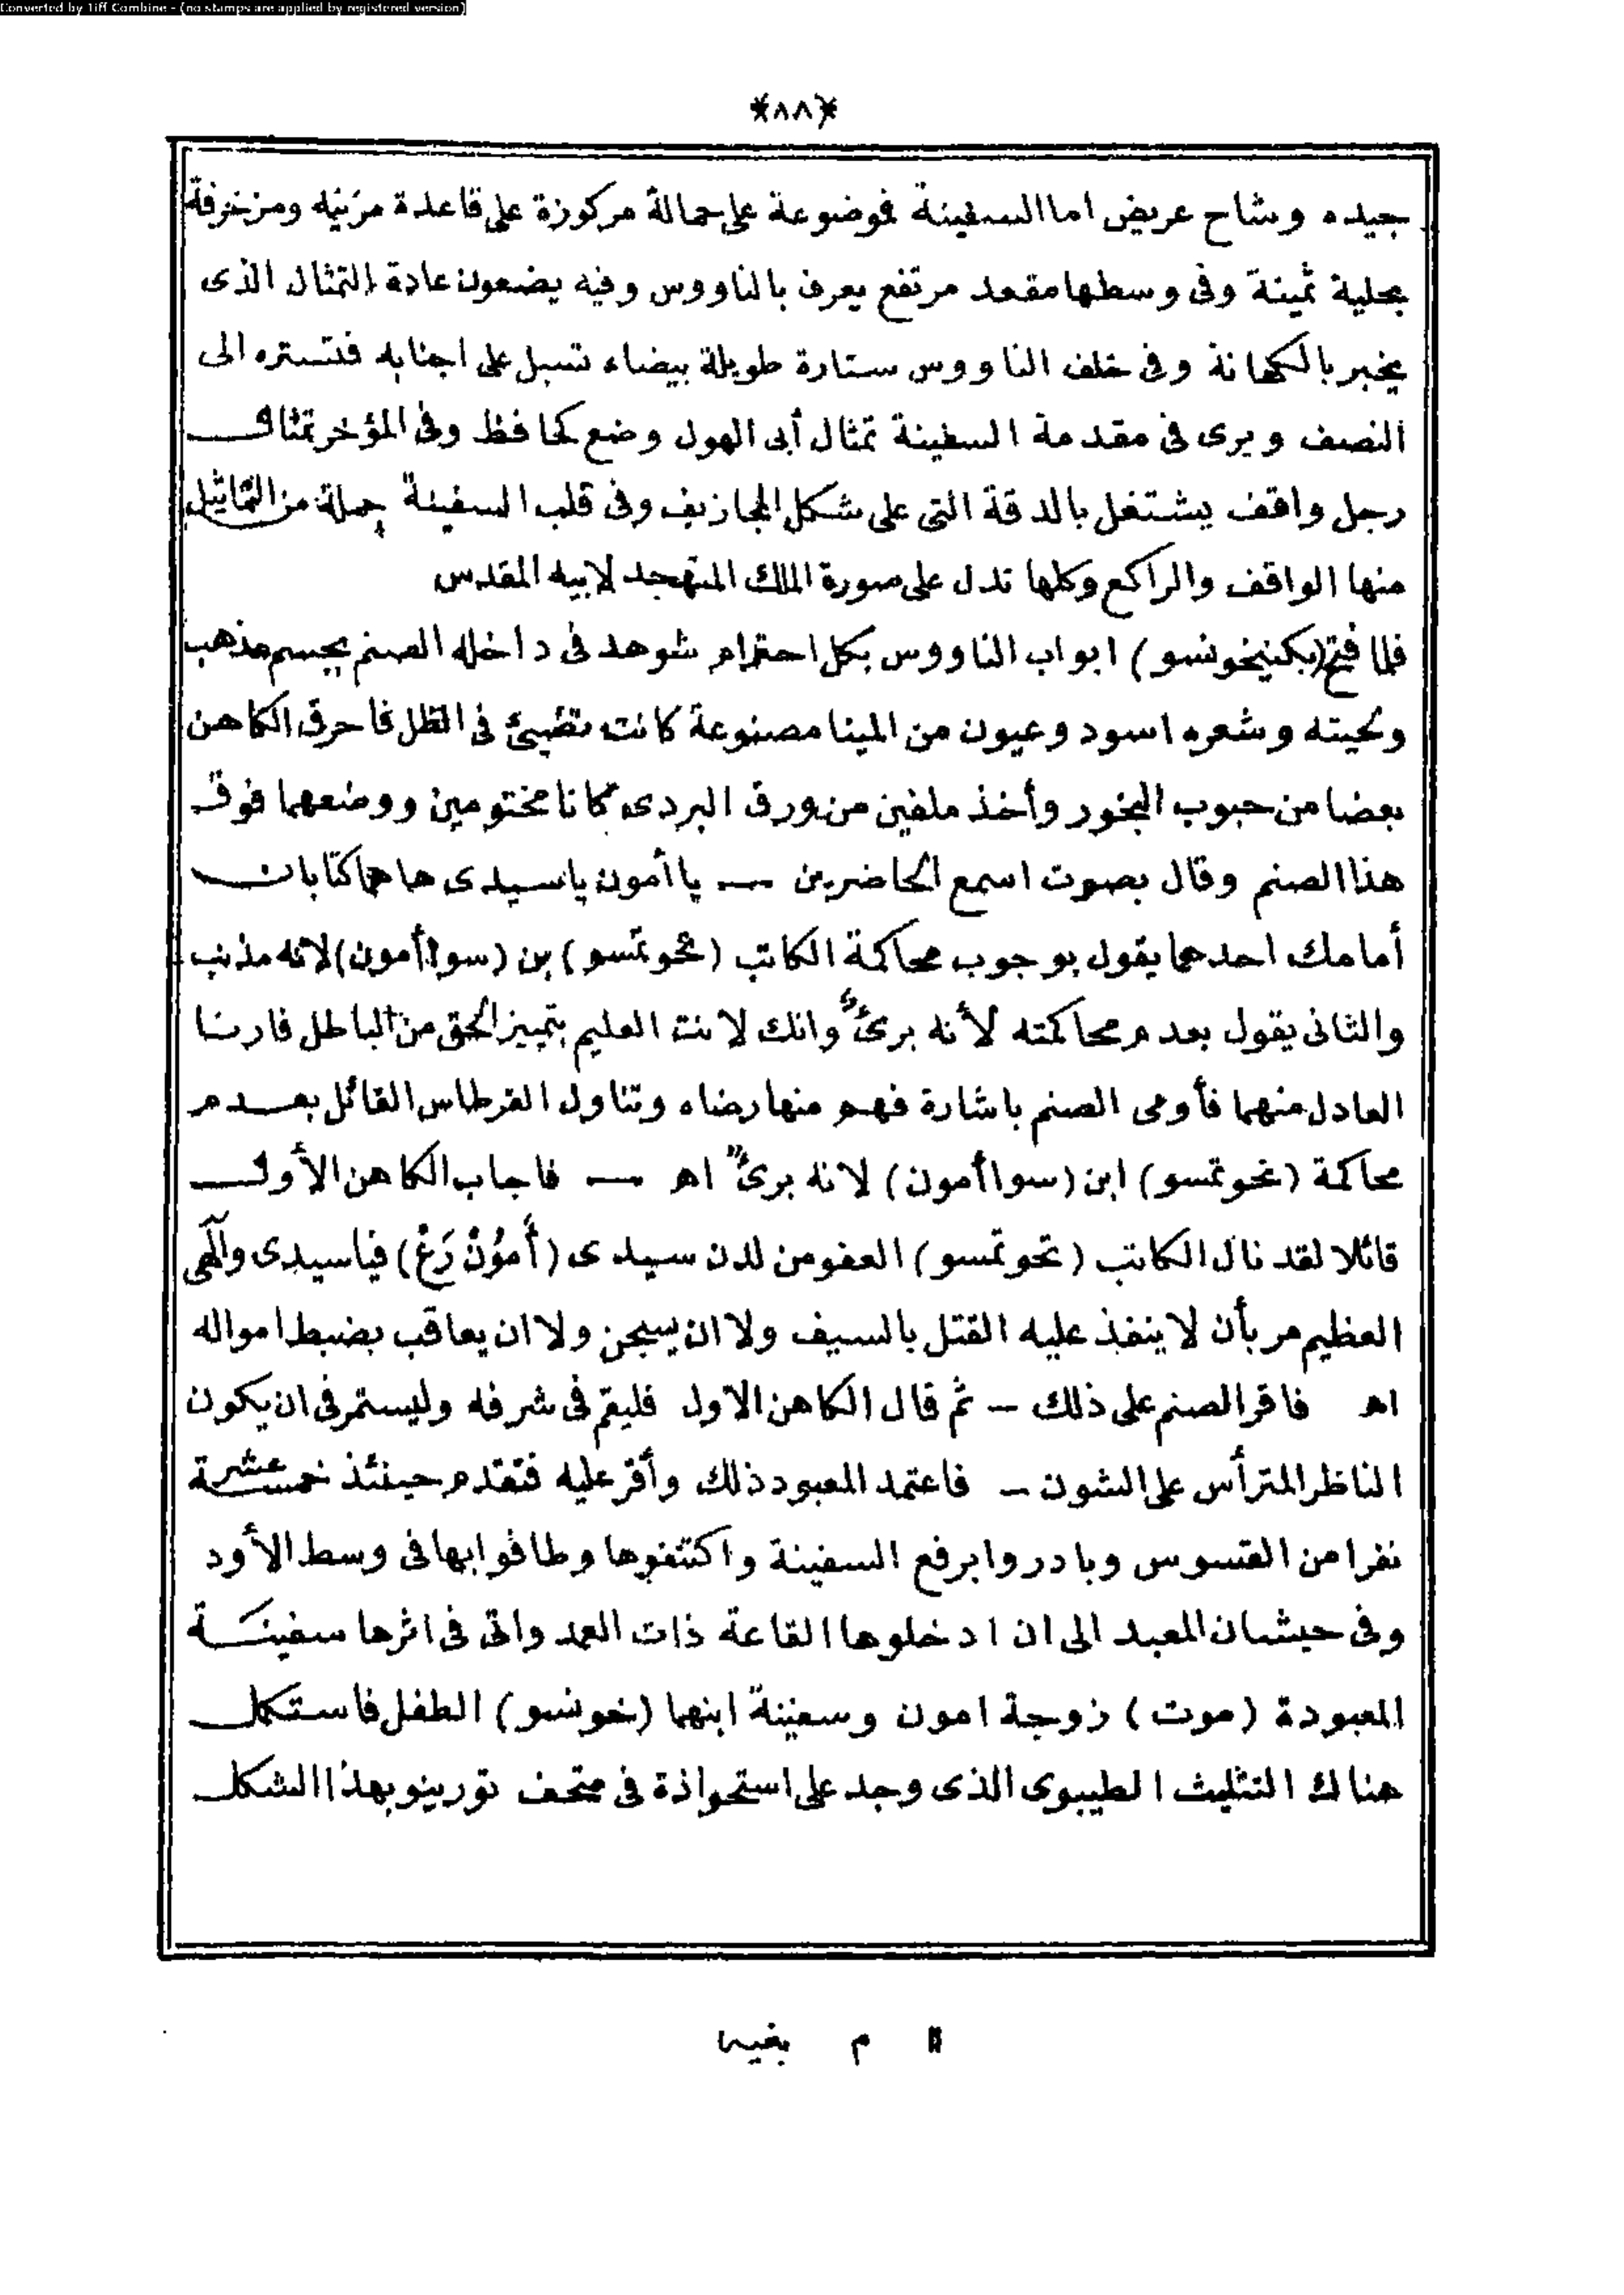 Converted by Tiff Combine - (no stamps are applied by registered version)
*(٨٨)*
بجيده وشاح عريض اما السفينة فموضوعة على حمالة مركوزة على قاعدة مزينه ومزخرفة
بحلية ثمينة وفى وسطها مقعد مرتفع يعرف بالناووس وفيه يضعون عادة التمثال الذى
يخبر بالكهانة وفى خلف الناووس ستارة طويلة بيضاء تسبل على اجنابه فتستره الى
النصف ويرى فى مقدمة السفينة تمثال أبى الهول وضع كحافظ وفى المؤخر تمثال
رجل واقف يشتغل بالدقة التى على شكل المجازيف وفى قلب السفينة جملة من التماثيل
منها الواقف والراكع وكلها تدل على صورة الملك المتهجد لابيه المقدس
فلما فتح (بكنيخونسو) ابواب الناووس بكل احترام شوهد فى داخله الصنم بجسم مذهب
ولحيته وشعره اسود وعيون من المينا مصنوعة كانت تضيئ فى الظل فاحرق الكاهن
بعضا من حبوب البخور وأخذ ملفين من ورق البردى كانا مختومين ووضعهما فوق
هذا الصنم وقال بصوت اسمع الحاضرين — يا أمون يا سيدى ها هما كتابان
أمامك احدهما يقول بوجوب محاكمة الكاتب (تحوتمسو) بن (سوا أمون) لانه مذنب
والثانى يقول بعدم محاكمته لأنه برئ وانك لانت العليم بتمييز الحق من الباطل فارنا
العادل منهما فأومى الصنم باشارة فهم منها رضاه وتناول القرطاس القائل بعدم
محاكمة (تحوتمسو) ابن (سوا أمون) لانه برئ اهـ — فاجاب الكاهن الأول
قائلا لقد نال الكاتب (تحوتمسو) العفو من لدن سيدى (أَمُونْ رَعْ) فياسيدى والٓهى
العظيم مر بأن لا ينفذ عليه القتل بالسيف ولا ان يسجن ولا ان يعاقب بضبط امواله
اهـ فاقر الصنم على ذلك — ثم قال الكاهن الاول فليقم فى شرفه وليستمر فى ان يكون
الناظر المترأس على الشون — فاعتمد المعبود ذلك وأقر عليه فتقدم حينئذ خمسة عشرة
نفرا من القسوس وبادروا برفع السفينة واكتنفوها وطافوا بها فى وسط الأود
وفى حيشان المعبد الى ان ادخلوها القاعة ذات العمد واتى فى اثرها سفينة
المعبودة (موت) زوجة امون وسفينة ابنهما (خونسو) الطفل فاستكمل
هناك التثليث الطيبوى الذى وجد على استحواذة فى متحف تورينو بهذا الشكل
م بغيه